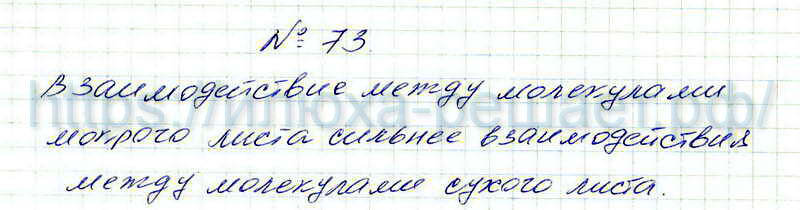 № 73.
Взаимодействие между молекулами
мокрого листа сильнее взаимодействия
между молекулами сухого листа.